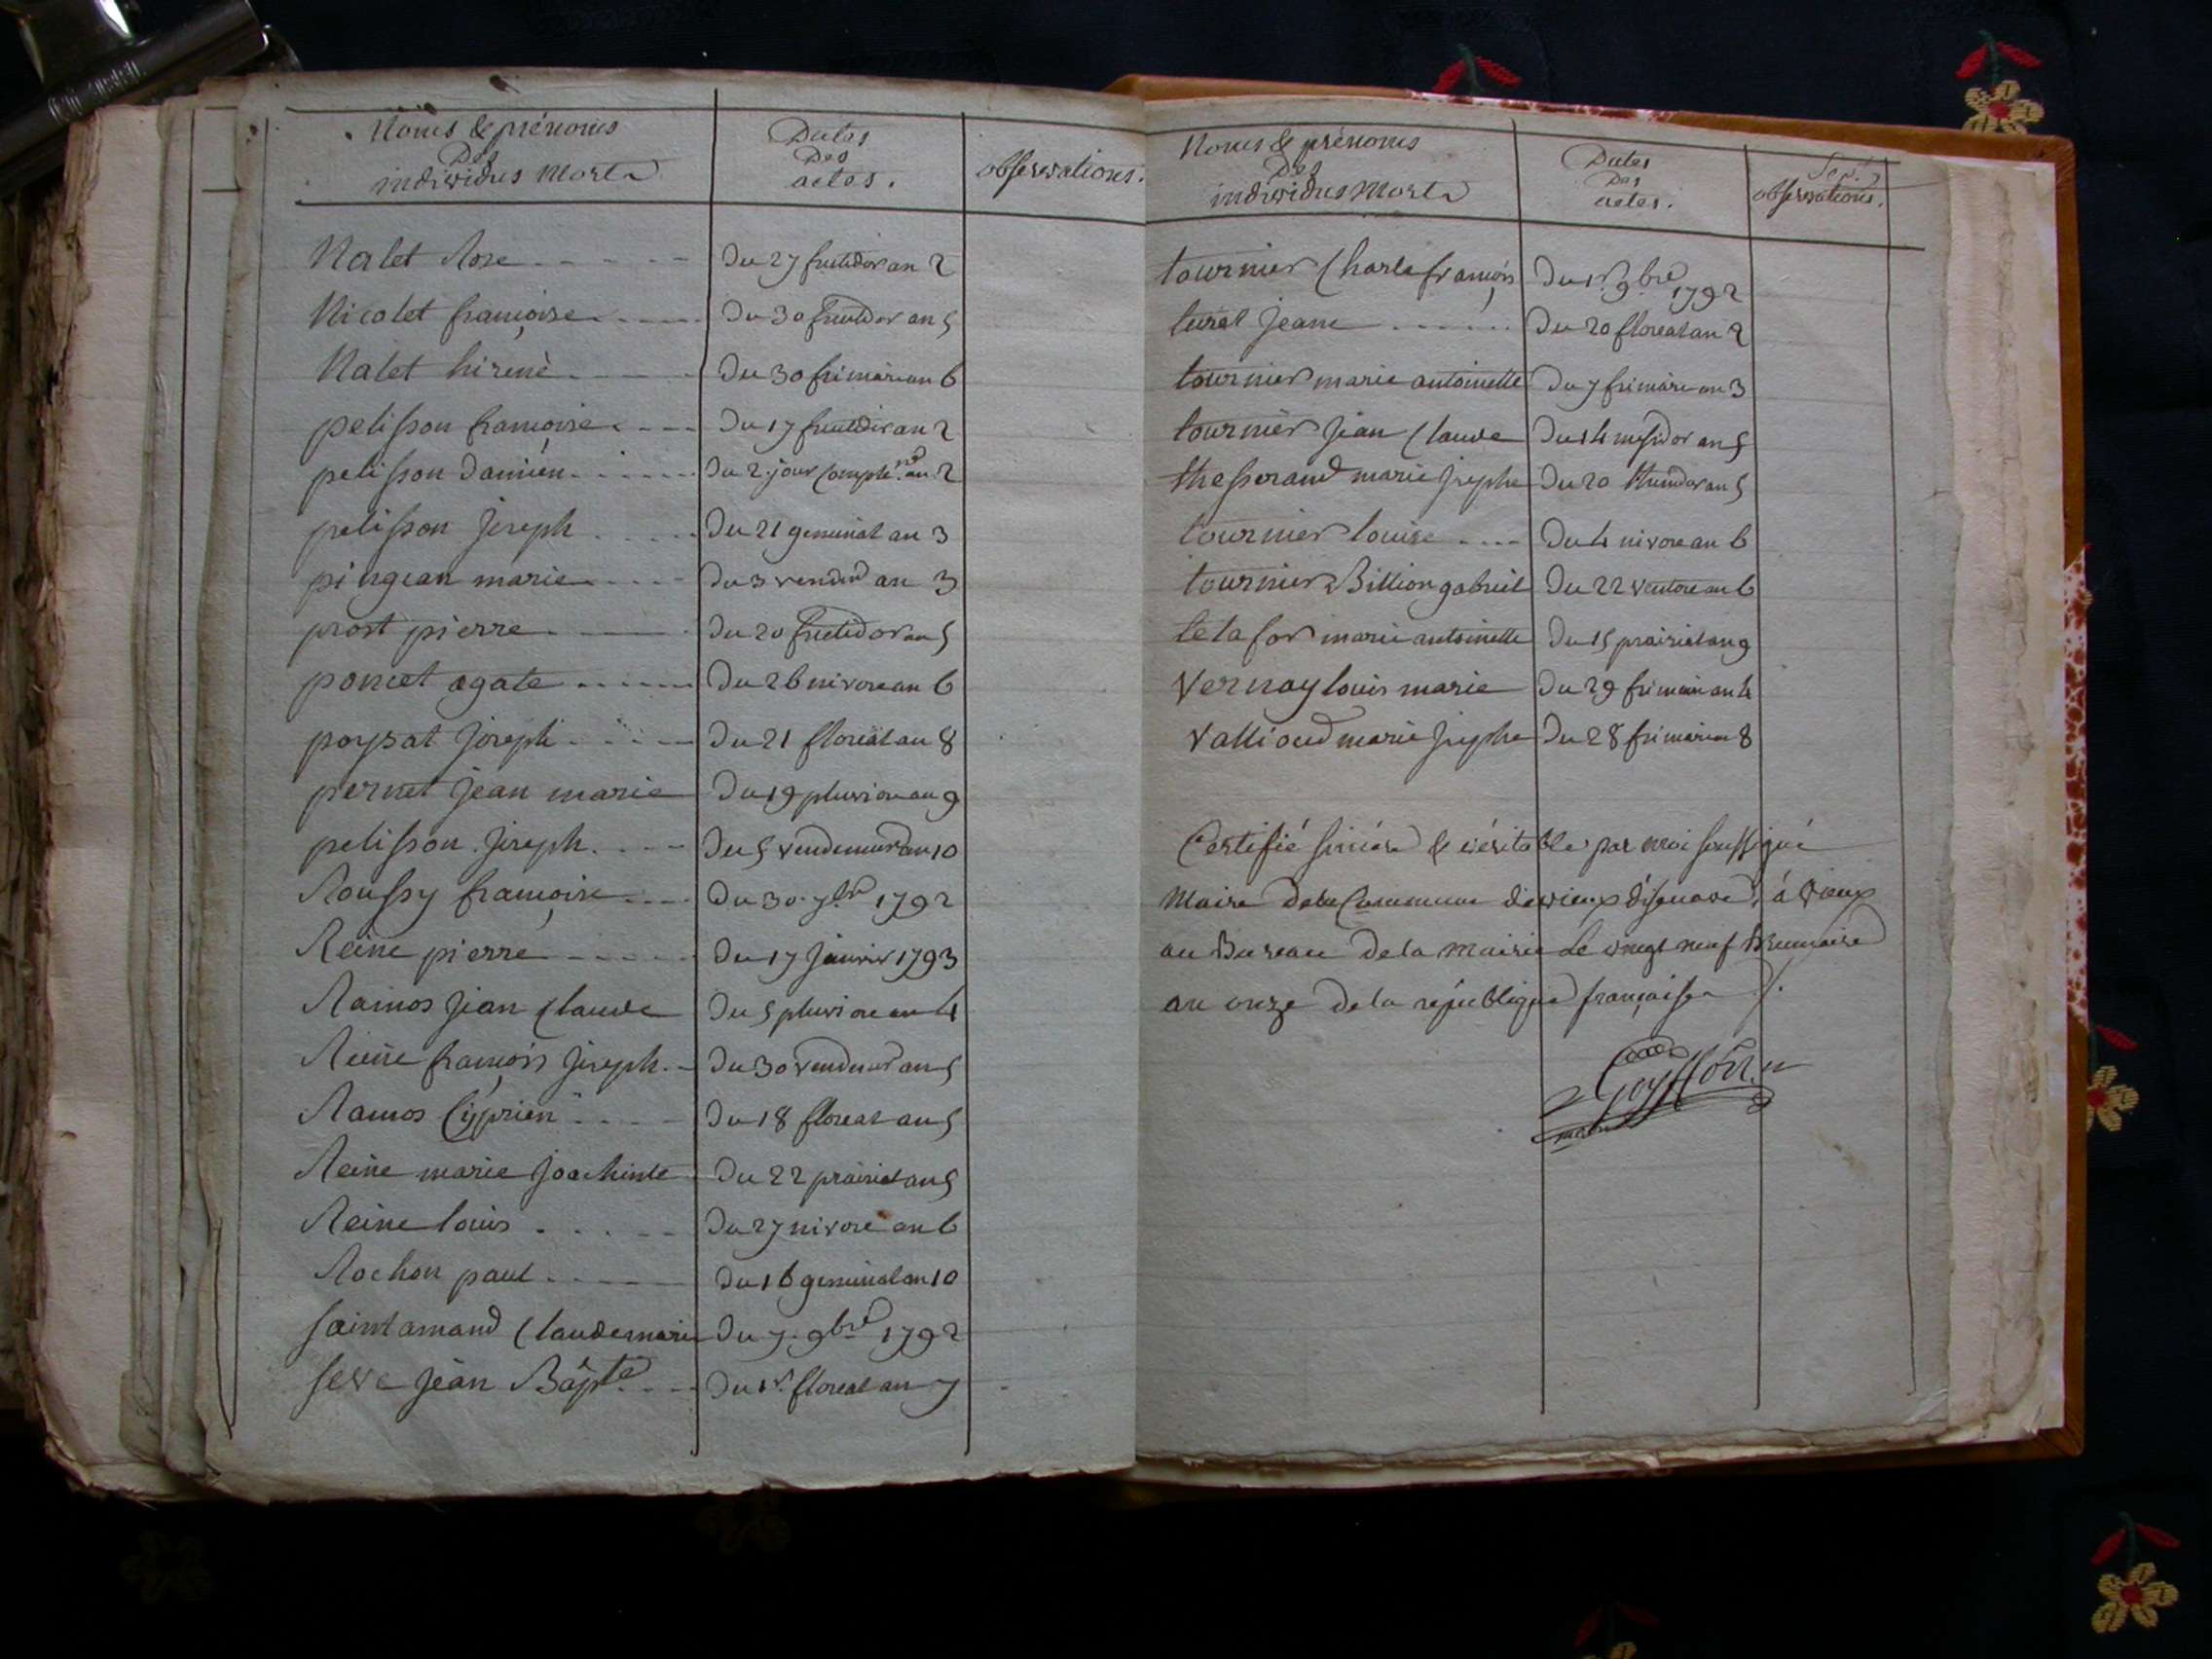 Noms & prénoms
Des
individus Morts
Dates
Des
actes.
observations.
Nalet Rose Du 27 fructidor an 2
Nicolet françoise Du 30 fructidor an 5
Nalet hirené Du 30 frimaire an 6
pelisson françoise Du 17 fructidor an 2
pelisson Damien Du 2. jour Complre. an 2
pelisson Joseph Du 21 germinal an 3
pingean marie Du 3 vendre an 3
prost pierre Du 20 fructidor an 5
poncet agate Du 26 nivose an 6
poysat Joseph Du 21 floréal an 8
pernet Jean marie Du 19 pluviose an 9
pelisson Joseph Du 5 vendemiere an 10
Roussy françoise Du 30. 7bre 1792
Reine pierre Du 17 Janvier 1793
Ramos Jean Claude Du 5 pluviose an 4
Reine françois Joseph Du 30 vendemre an 5
Ramos Cyprien Du 18 floreal an 5
Reine marie Joachinte Du 22 prairial an 5
Reine louis Du 27 nivose an 6
Rochon paul Du 16 germinal an 10
saint amand Claudemarie Du 7. 9bre 1792
seve Jean Bapte Du 1r. floreal an 7
Noms & prénoms
Des
individus Morts
Dates
Des
actes.
observations.
tournier Charle françois Du 1r. 9bre 1792
turel Jeane Du 20 floreal an 2
tournier marie antoinette Du 7 frimaire an 3
tournier Jean Claude Du 14 messidor an 5
thesserand marie Josephe Du 20 thermidor an 5
tournier louise Du 4 nivose an 6
tournier Billion gabriel Du 22 ventose an 6
letafor marie antoinette Du 15 prairial an 9
Vernay louis marie Du 29 frimaire an 4
Vallioud marie Josephe Du 28 frimaire an 8
Certifié sincère & véritable par moi soussigné
Maire de la Commune de vieux d'izenave, à vieux
au Bureau de la mairie Le vingt neuf Brumaire
an onze de la république française ./.
Goyffon
maire